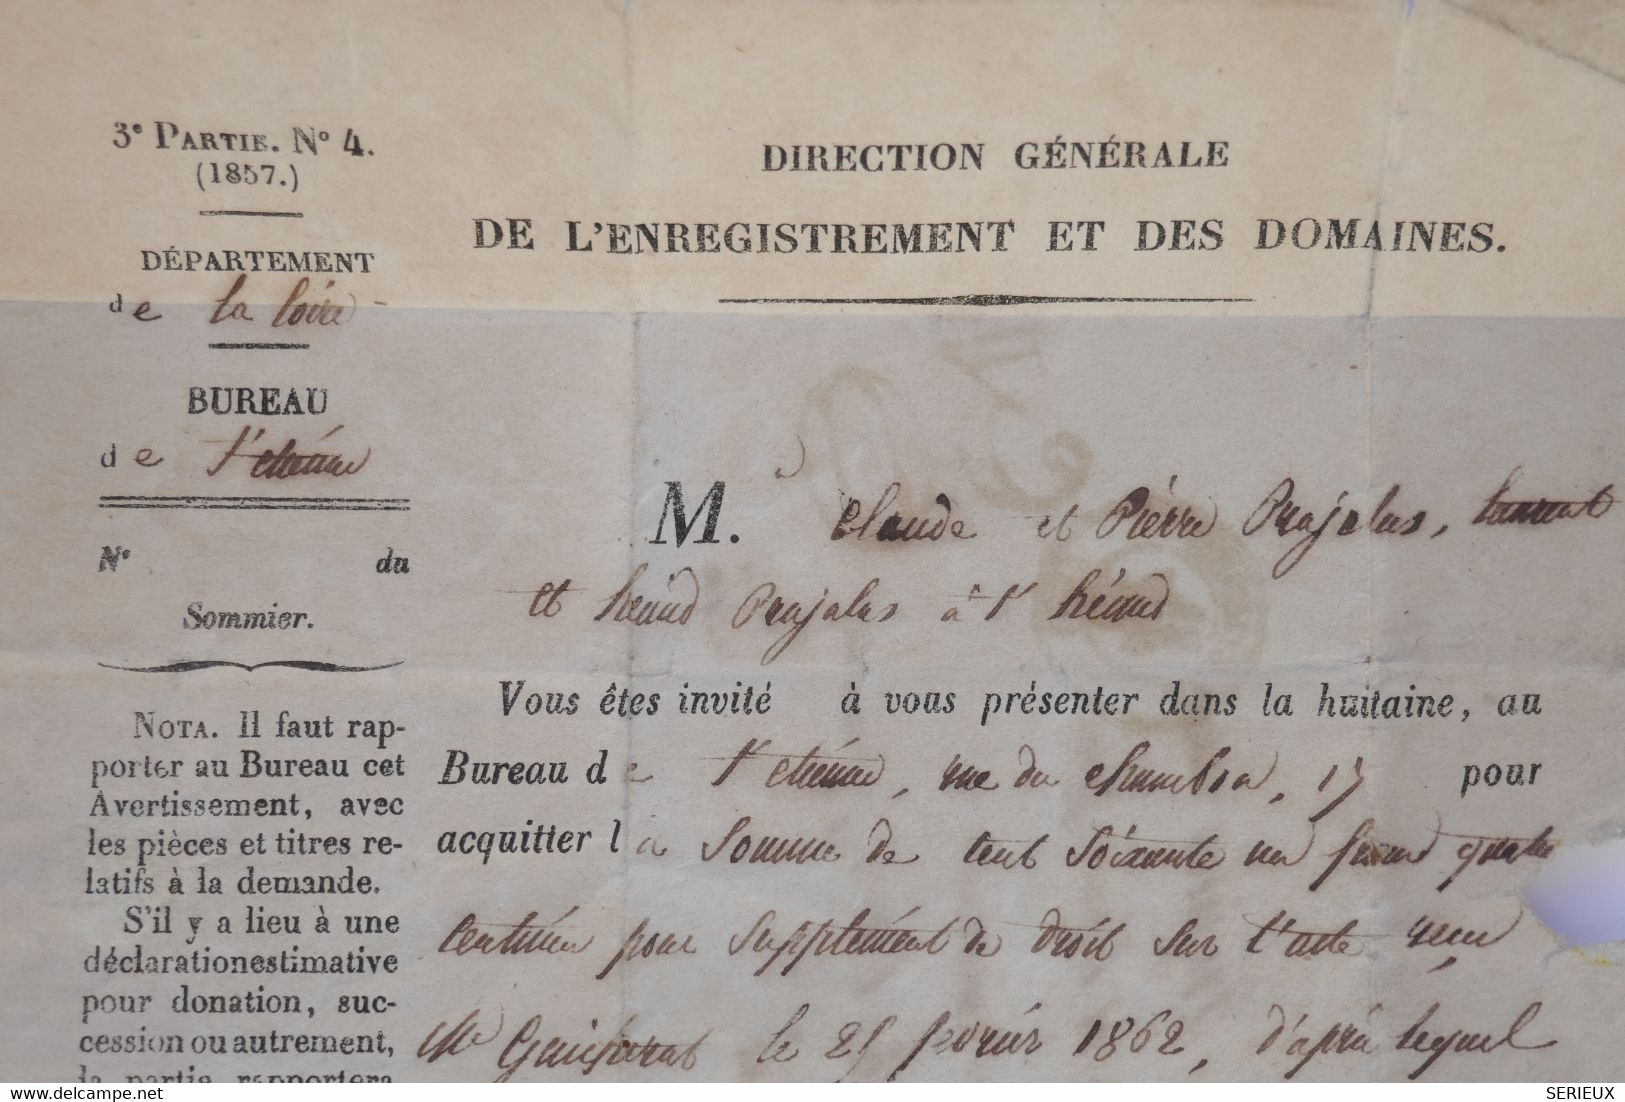 3e PARTIE. No 4.
(1857.)
DÉPARTEMENT
de la loire
BUREAU
de St etienne
No du
Sommier.
NOTA. Il faut rap-
porter au Bureau cet
Avertissement, avec
les pièces et titres re-
latifs à la demande.
S'il y a lieu à une
déclaration estimative
pour donation, suc-
cession ou autrement,
la partie rapportera
DIRECTION GÉNÉRALE
DE L'ENREGISTREMENT ET DES DOMAINES.
M. Claude et Pierre Prajalas, laurent
et heand Prajalas à St héand
Vous êtes invité à vous présenter dans la huitaine, au
Bureau de St etienne, rue du chambon, 15 pour
acquitter la somme de cent soixante un franc quatre
centimes pour supplément de droit sur l'acte recu
Me le 25 fevrier 1862, d'après lequel
delcampe.net
SERIEUX